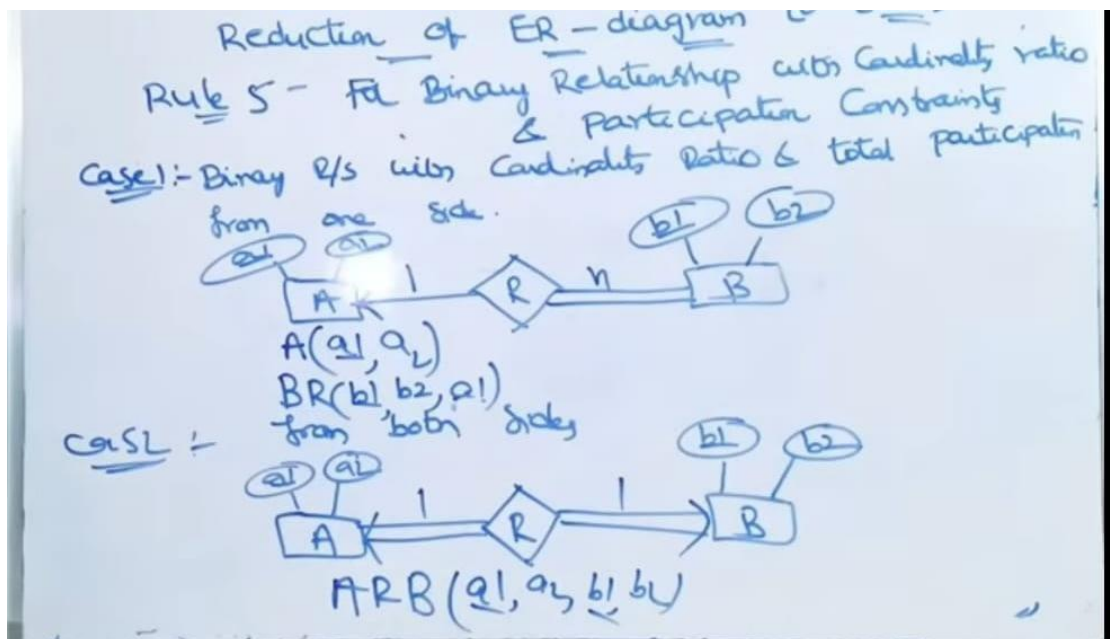 Reduction of ER - diagram to
Rule 5 - For Binary Relationship with Cardinality ratio
& participation Constraints
Case1:- Binay R/S with Cardinality Ratio & total participation
from one side.
a1 a2 b1 b2
A 1 R n B
A(a1, a2)
BR(b1, b2, a1)
Cas2 :- from both sides
a1 a2 b1 b2
A 1 R 1 B
ARB(a1, a2, b1, b2)